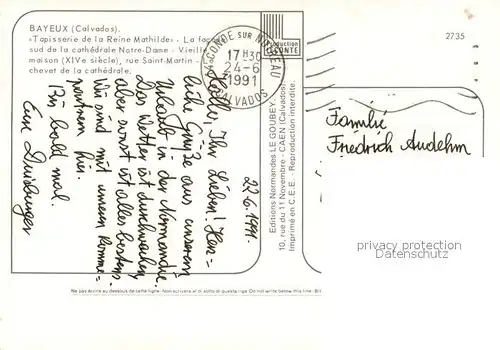 BAYEUX (Calvados).
«Tapisserie de la Reine Mathilde» - La façade
sud de la cathédrale Notre-Dame - Vieille
maison (XIVe siècle), rue Saint-Martin -
chevet de la cathédrale.
SUR NOIREAU
17 H 30
24-6
1991
CALVADOS
2735
22.6.1991.
Hallo, Ihr Lieben! Herz-
liche Grüße aus unserem
Urlaub in der Normandie.
Das Wetter ist durchwachsen
aber sonst ist alles bestens
Wir sind mit unseren
hier.
Bis bald mal.
Eure Duisburger
Editions Normandes LE GOUBEY
10, rue du 11 Novembre - CAEN (Calvados)
Imprimé en C.E.E. - Reproduction interdite.
Familie
Friedrich Audehm
privacy protection
Datenschutz
Ne pas écrire au-dessous de cette ligne